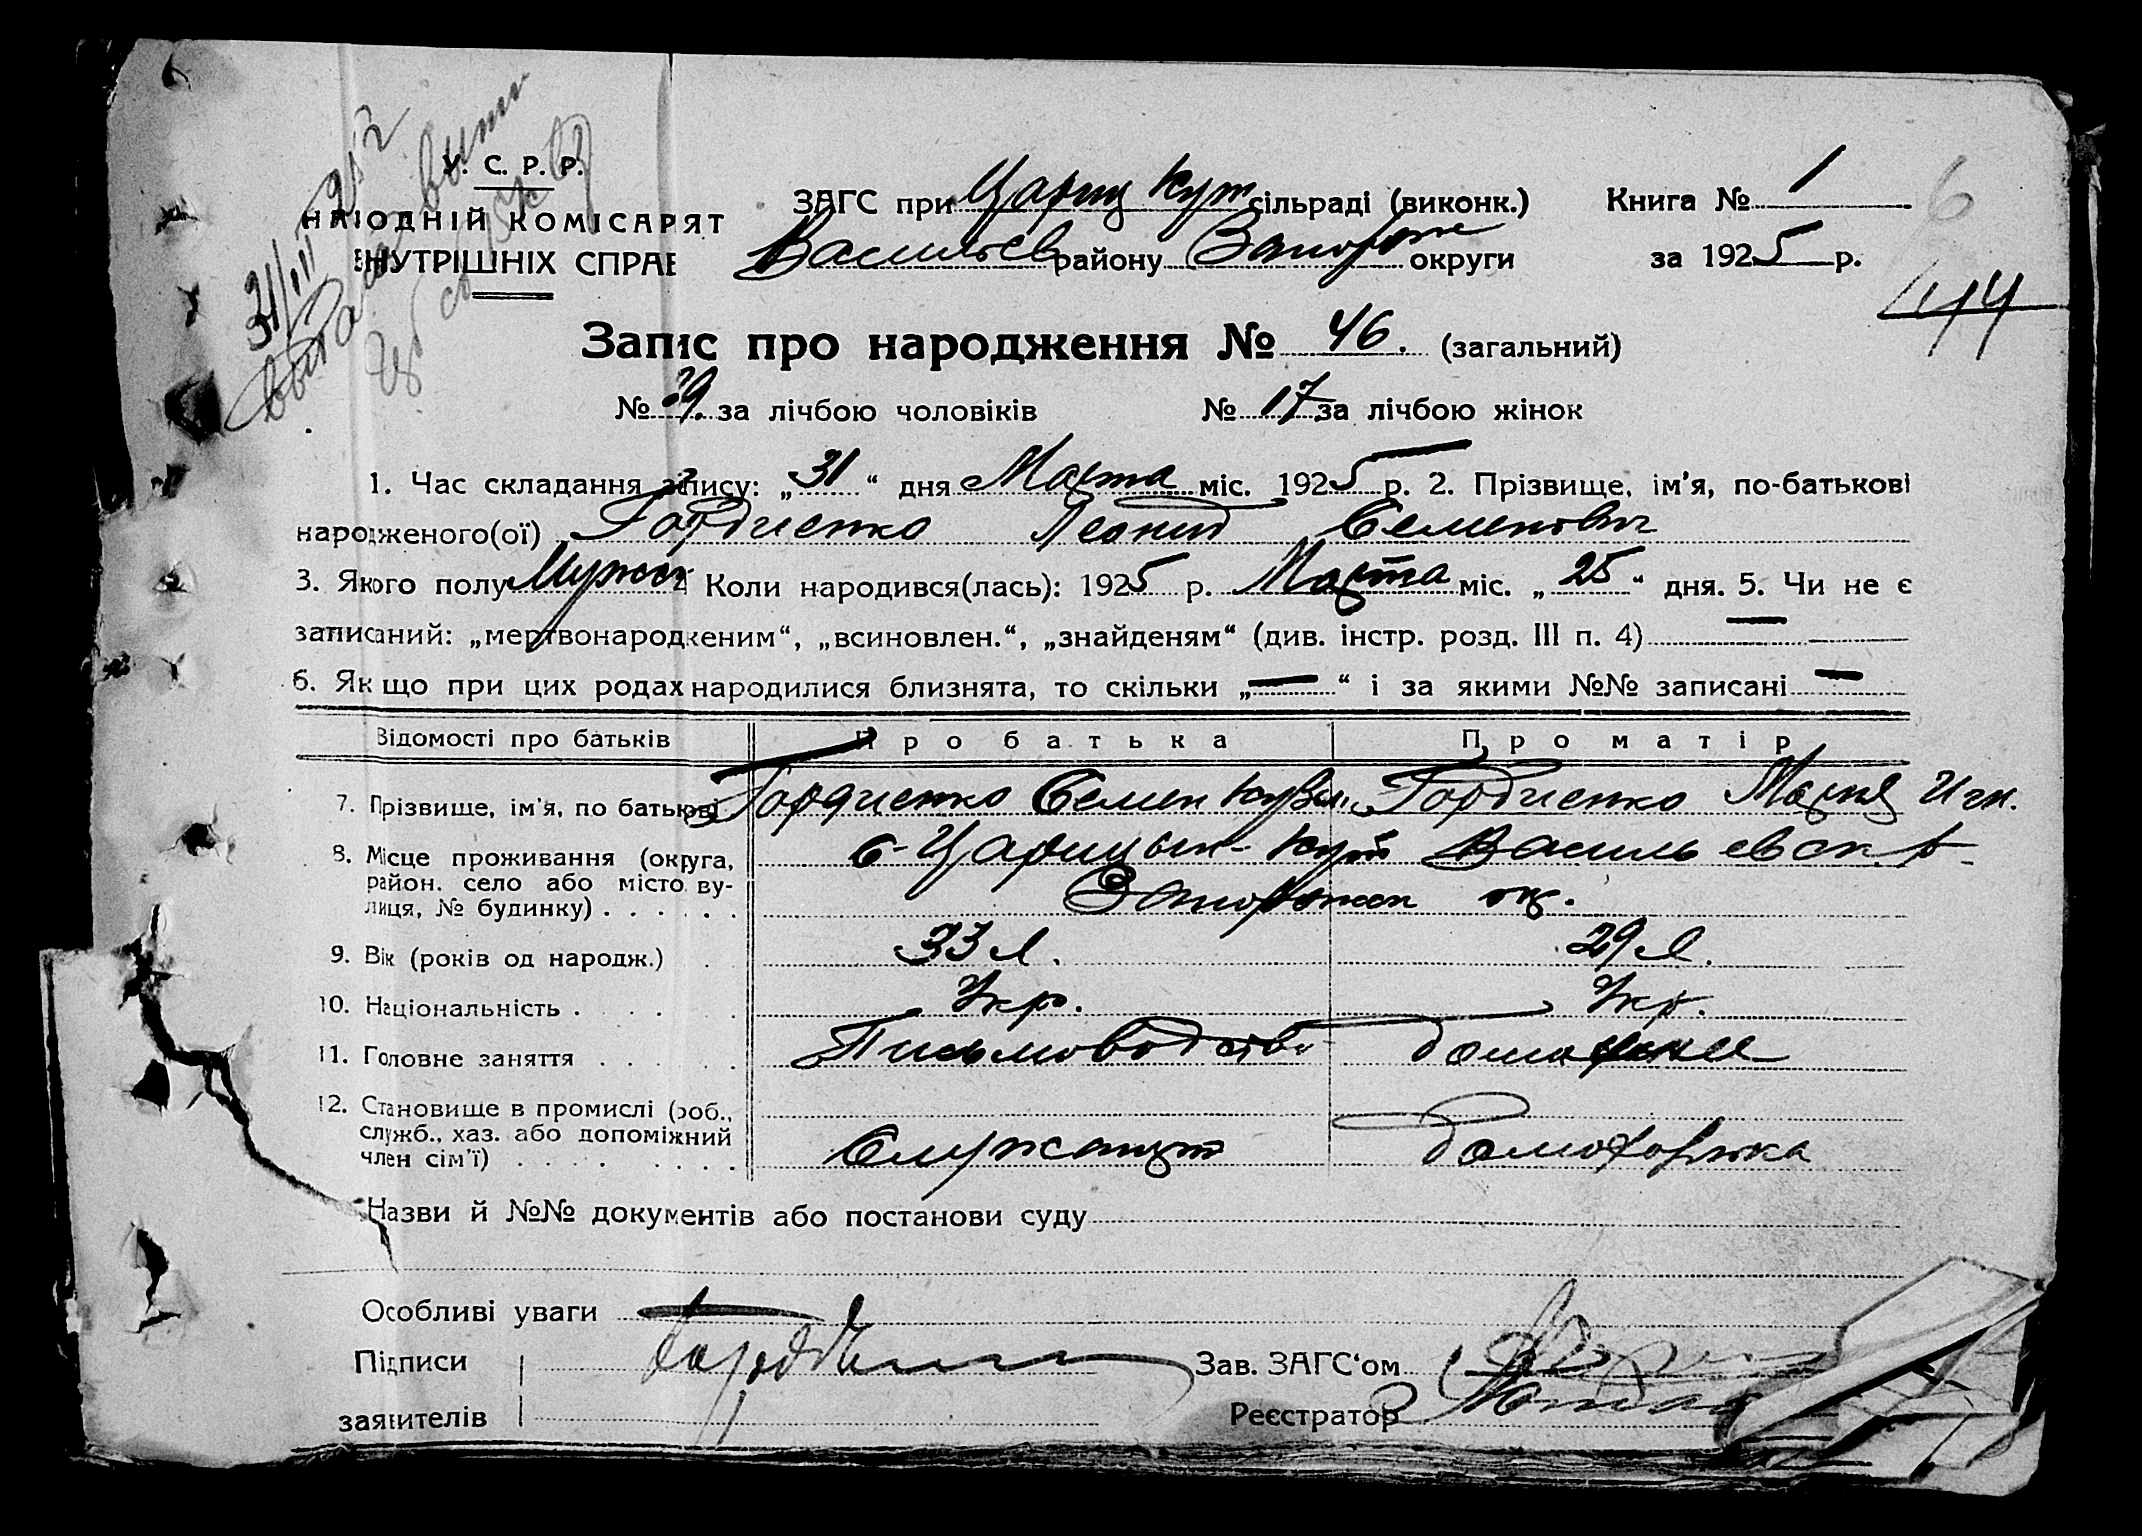 У. С. Р. Р.
НАРОДНІЙ КОМІСАРЯТ
ВНУТРІШНІХ СПРАВ
ЗАГС при Цариц Кут сільраді (виконк.)
Васильев району Запорож округи
Книга № 1
за 1925 р.
6
44
31/III
Запис про народження № 46. (загальний)
№ 29. за лічбою чоловіків № 17 за лічбою жінок
1. Час складання запису: „31“ дня Марта міс. 1925 р. 2. Прізвище, ім'я, по-батькові
народженого(ої) Гордиенко Леонид Семенович
3. Якого полу Мужск 4 Коли народився(лась): 1925 р. Марта міс. „25“ дня. 5. Чи не є
записаний: „мертвонародженим“, „всиновлен.“, „знайденям“ (див. інстр. розд. III п. 4) —
6. Якщо при цих родах народилися близнята, то скільки „—“ і за якими №№ записані —
Відомості про батьків Про батька Про матір
7. Прізвище, ім'я, по батькові Гордиенко Семен Кузм. Гордиенко Мария Игн.
8. Місце проживання (округа, район. село або місто ву-лиця, № будинку) с. Царицын-Кут Васильевск. р.
Запорожск ок.
9. Вік (років од народж.) 33 л. 29 л.
10. Національність Укр. Укр.
11. Головне заняття Письмоводство домашнее
12. Становище в промислі (роб., служб., хаз. або допоміжний член сім'ї) Служащий домохозяйка
Назви й №№ документів або постанови суду
Особливі уваги —
Підписи
заявителів
Зав. ЗАГС'ом
Реєстратор